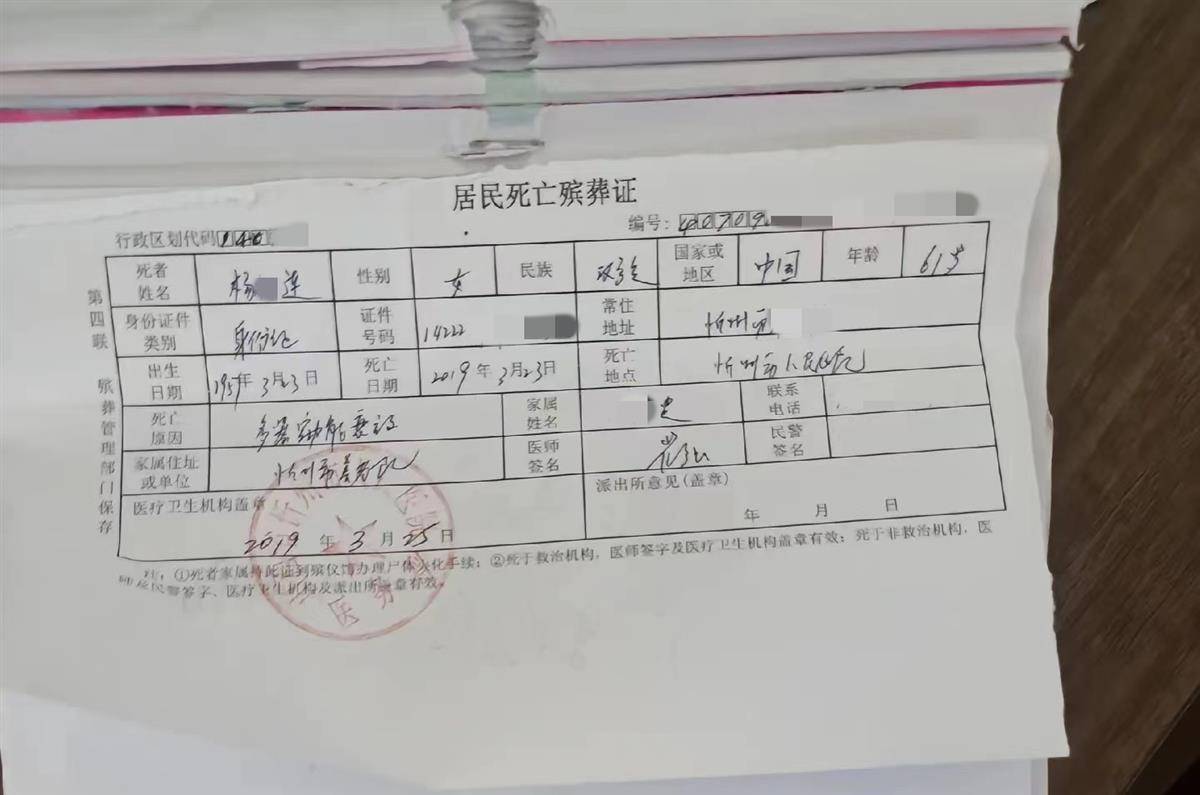 居民死亡殡葬证
行政区划代码 14 编号: 40709
死者姓名 杨 莲 性别 女 民族 汉族 国家或地区 中国 年龄 61岁
身份证件类别 身份证 证件号码 14222 常住地址 忻州市
出生日期 1957年3月23日 死亡日期 2019年3月23日 死亡地点 忻州市人民医院
死亡原因 多器官功能衰竭 家属姓名 联系电话
家属住址或单位 忻州市 医师签名 民警签名
医疗卫生机构盖章: 派出所意见(盖章)
2019 年 3 月 25 日 年 月 日
注: ①死者家属持此证到殡仪馆办理尸体火化手续; ②死于救治机构, 医师签字及医疗卫生机构盖章有效; 死于非救治机构, 医
师及民警签字、医疗卫生机构及派出所盖章有效。
第四联 殡葬管理部门保存